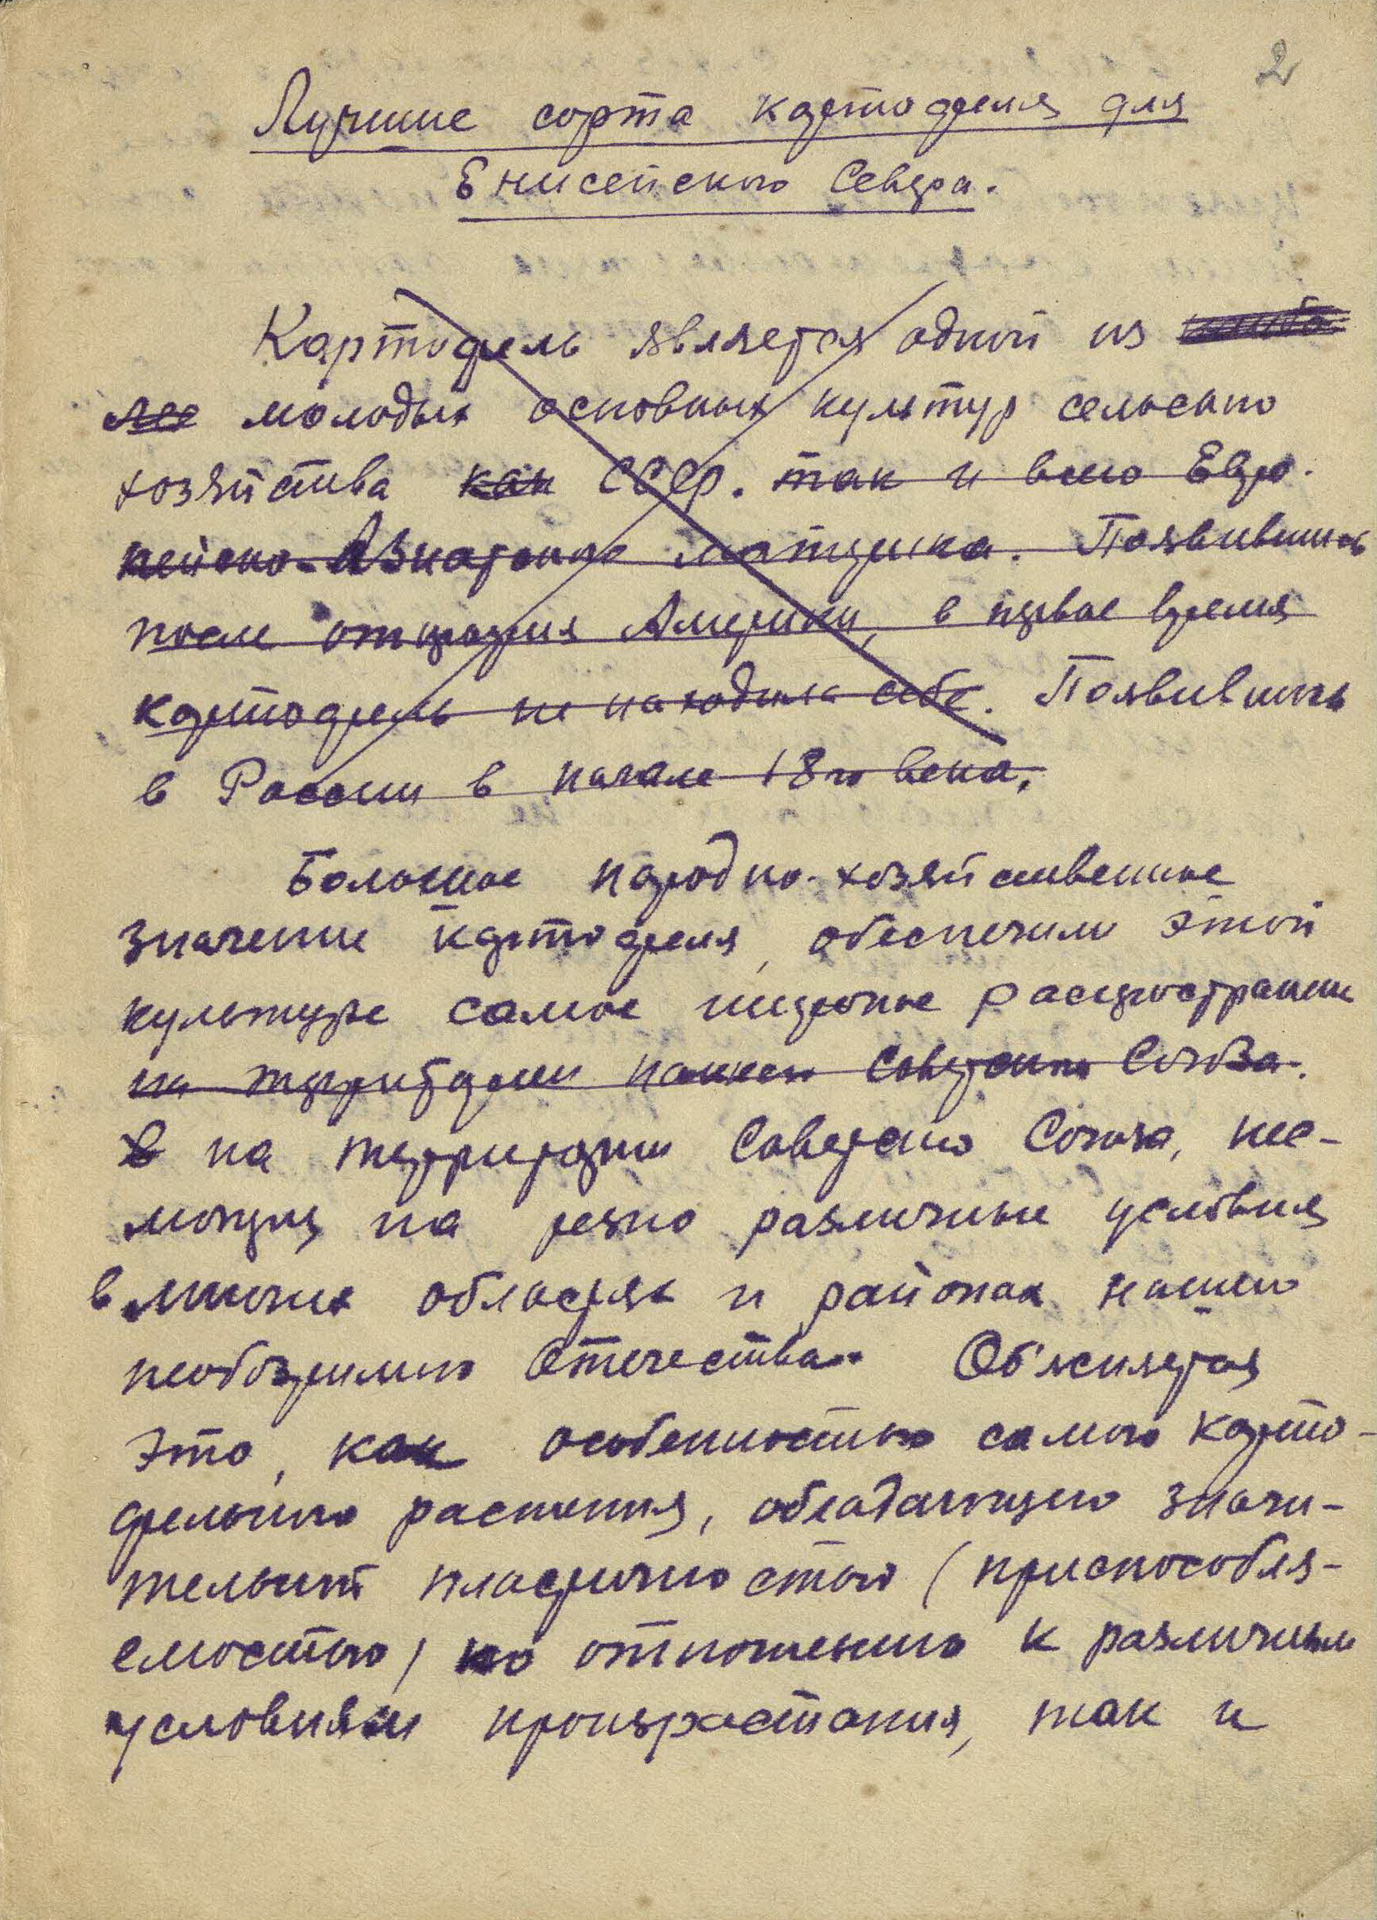 2
Лучшие сорта картофеля для
Енисейского Севера.
Картофель является одной из
молодых основных культур сельского
хозяйства как СССР. так и всего Евро-
пейско-Азиатского материка. Появившись
после открытия Америки, в первое время
картофель не находил себе. Появившись
в России в начале 18го века,
Большое народно-хозяйственное
значение картофеля, обеспечило этой
культуре самое широкое распространение
на территории нашего Советского Союза.
В на территории Советского Союза, нес-
мотря на резко различные условия
в многих областях и районах нашего
необозримого Отечества. Об'ясняется
это, как особенностью самого карто-
фельного растения, обладающего значи-
тельной пластичностью (приспособля-
емостью) по отношению к различным
условиям произрастания, так и